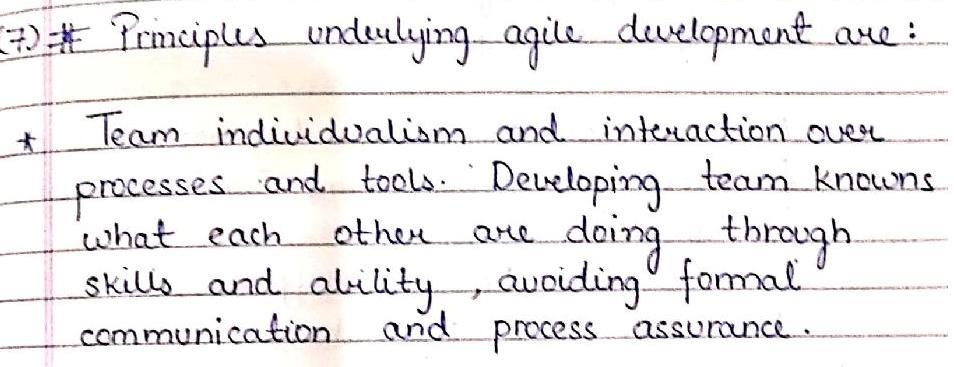 (7) # Principles underlying agile development are :
* Team individualism and interaction over
processes and tools. Developing team knowns
what each other are doing through
skills and ability , avoiding formal
communication and process assurance .